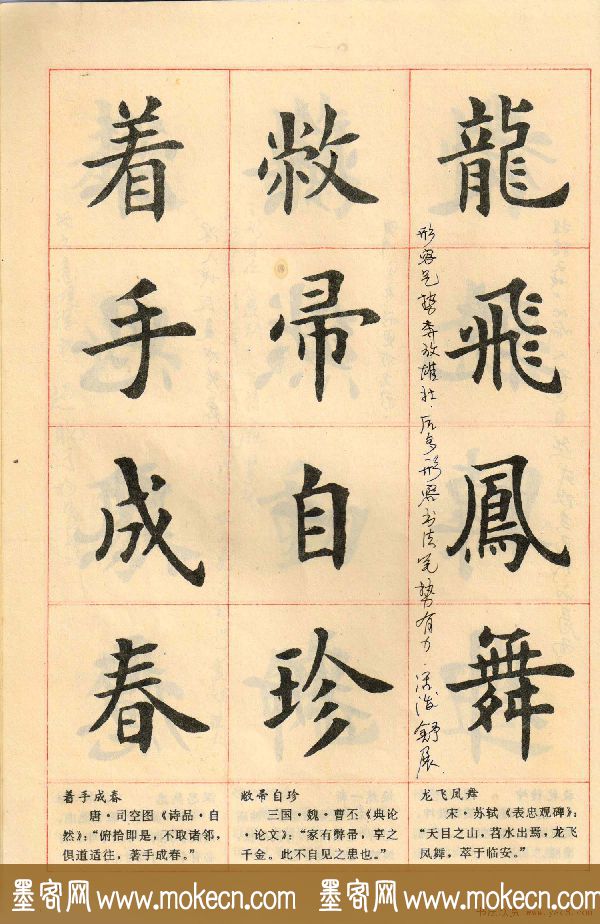 龍飛鳳舞
形容气势奔放雄壮.后多形容书法笔势有力.灵活舒展.
敝帚自珍
着手成春
龙飞凤舞
宋·苏轼《表忠观碑》:
“天目之山,苕水出焉,龙飞
凤舞,萃于临安。”
敝帚自珍
三国·魏·曹丕《典论
·论文》:“家有弊帚,享之
千金。此不自见之患也。”
着手成春
唐·司空图《诗品·自
然》:“俯拾即是,不取诸邻,
俱道适往,著手成春。”
墨客网 www.mokecn.com 墨客网 www.mokecn.com